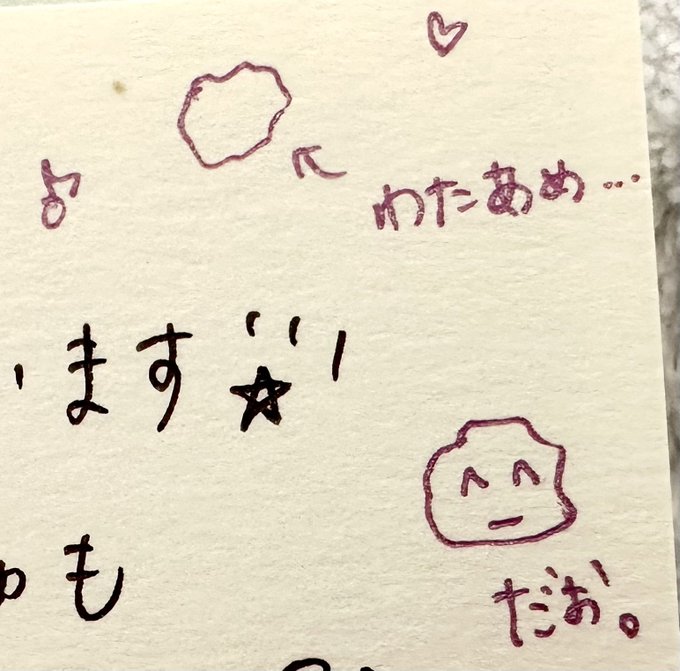 わたあめ…
ます☆
も
だお。